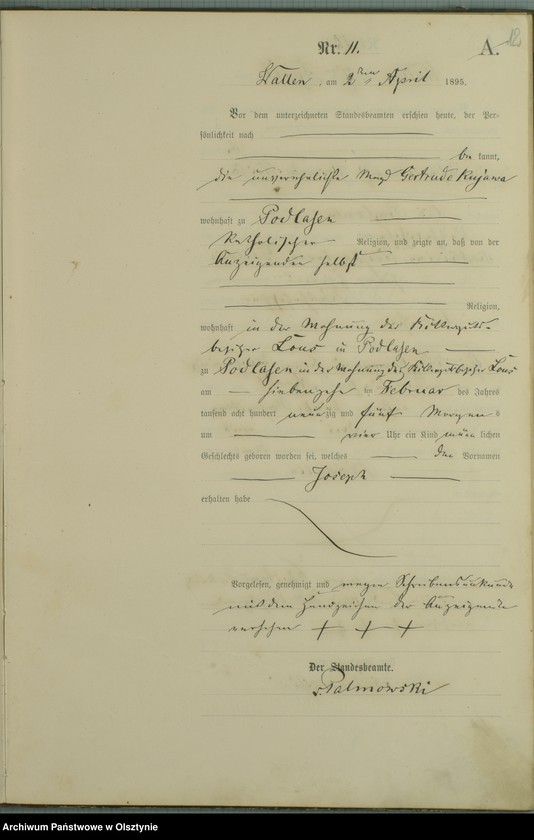 Nr. 11. A.
Wallen, am 2ten April 1895.
Vor dem unterzeichneten Standesbeamten erschien heute, der Per-
sönlichkeit nach
be kannt,
die unverehelichte Magd Gertrude Kujawa
wohnhaft zu Podlasen
katholischer Religion, und zeigte an, daß von der
Anzeigenden selbst
Religion,
wohnhaft in der Wohnung des Ritterguts-
besitzer Lous in Podlasen
zu Podlasen in der Wohnung des Rittergutsbesitzer Lous
am siebenzehn ten Februar des Jahres
tausend acht hundert neunzig und fünf Morgen s
um vier Uhr ein Kind männ lichen
Geschlechts geboren worden sei, welches den Vornamen
Joseph
erhalten habe
Vorgelesen, genehmigt und wegen Schreibensunkunde
mit dem Handzeichen der Anzeigende
versehen + + +
Der Standesbeamte.
v. Palmowski
Archiwum Państwowe w Olsztynie